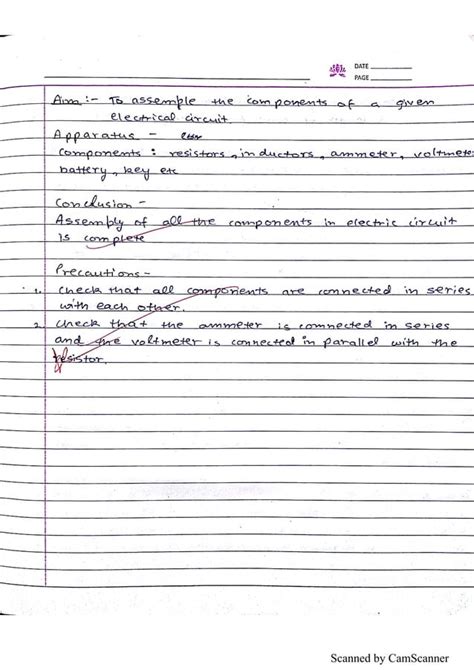 DATE
PAGE
Aim :- To assemple the components of a given
electrical circuit.
Apparatus -
components : resistors, inductors, ammeter, voltmete
battery, key etc
Conclusion -
Assembly of all the components in electric circuit
is complete
Precautions -
1. Check that all components are connected in series
with each other.
2. Check that the ammeter is connected in series
and the voltmeter is connected in parallel with the
resistor.
Scanned by CamScanner